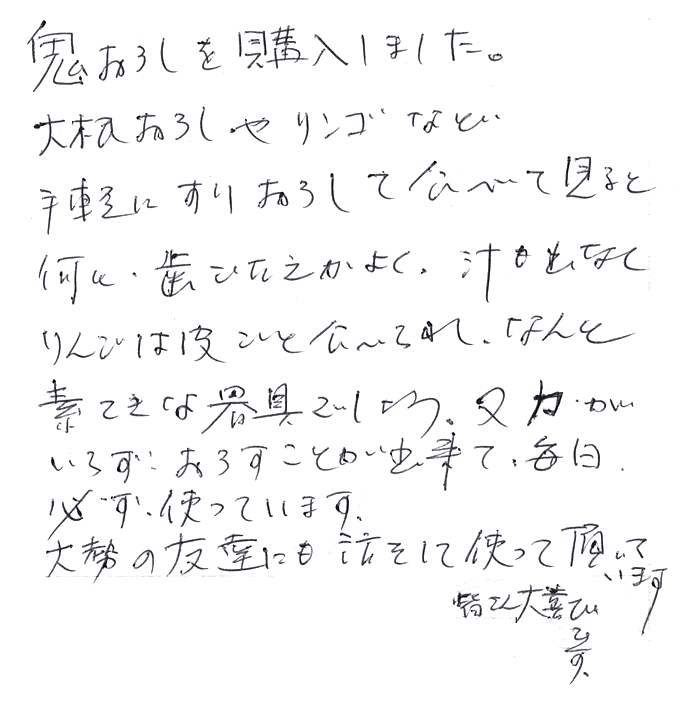 鬼おろしを購入しました。
大根おろしやリンゴなど
手軽にすりおろして食べて見ると
何と、歯ごたえがよく、汁も出なく
りんごは皮ごと食べられ、なんと
素てきな器具でしょう。又力が
いらず、おろすことが出来て、毎日
必ず、使っています。
大勢の友達にも話そして使って頂いて
います
皆さん大喜び
です。